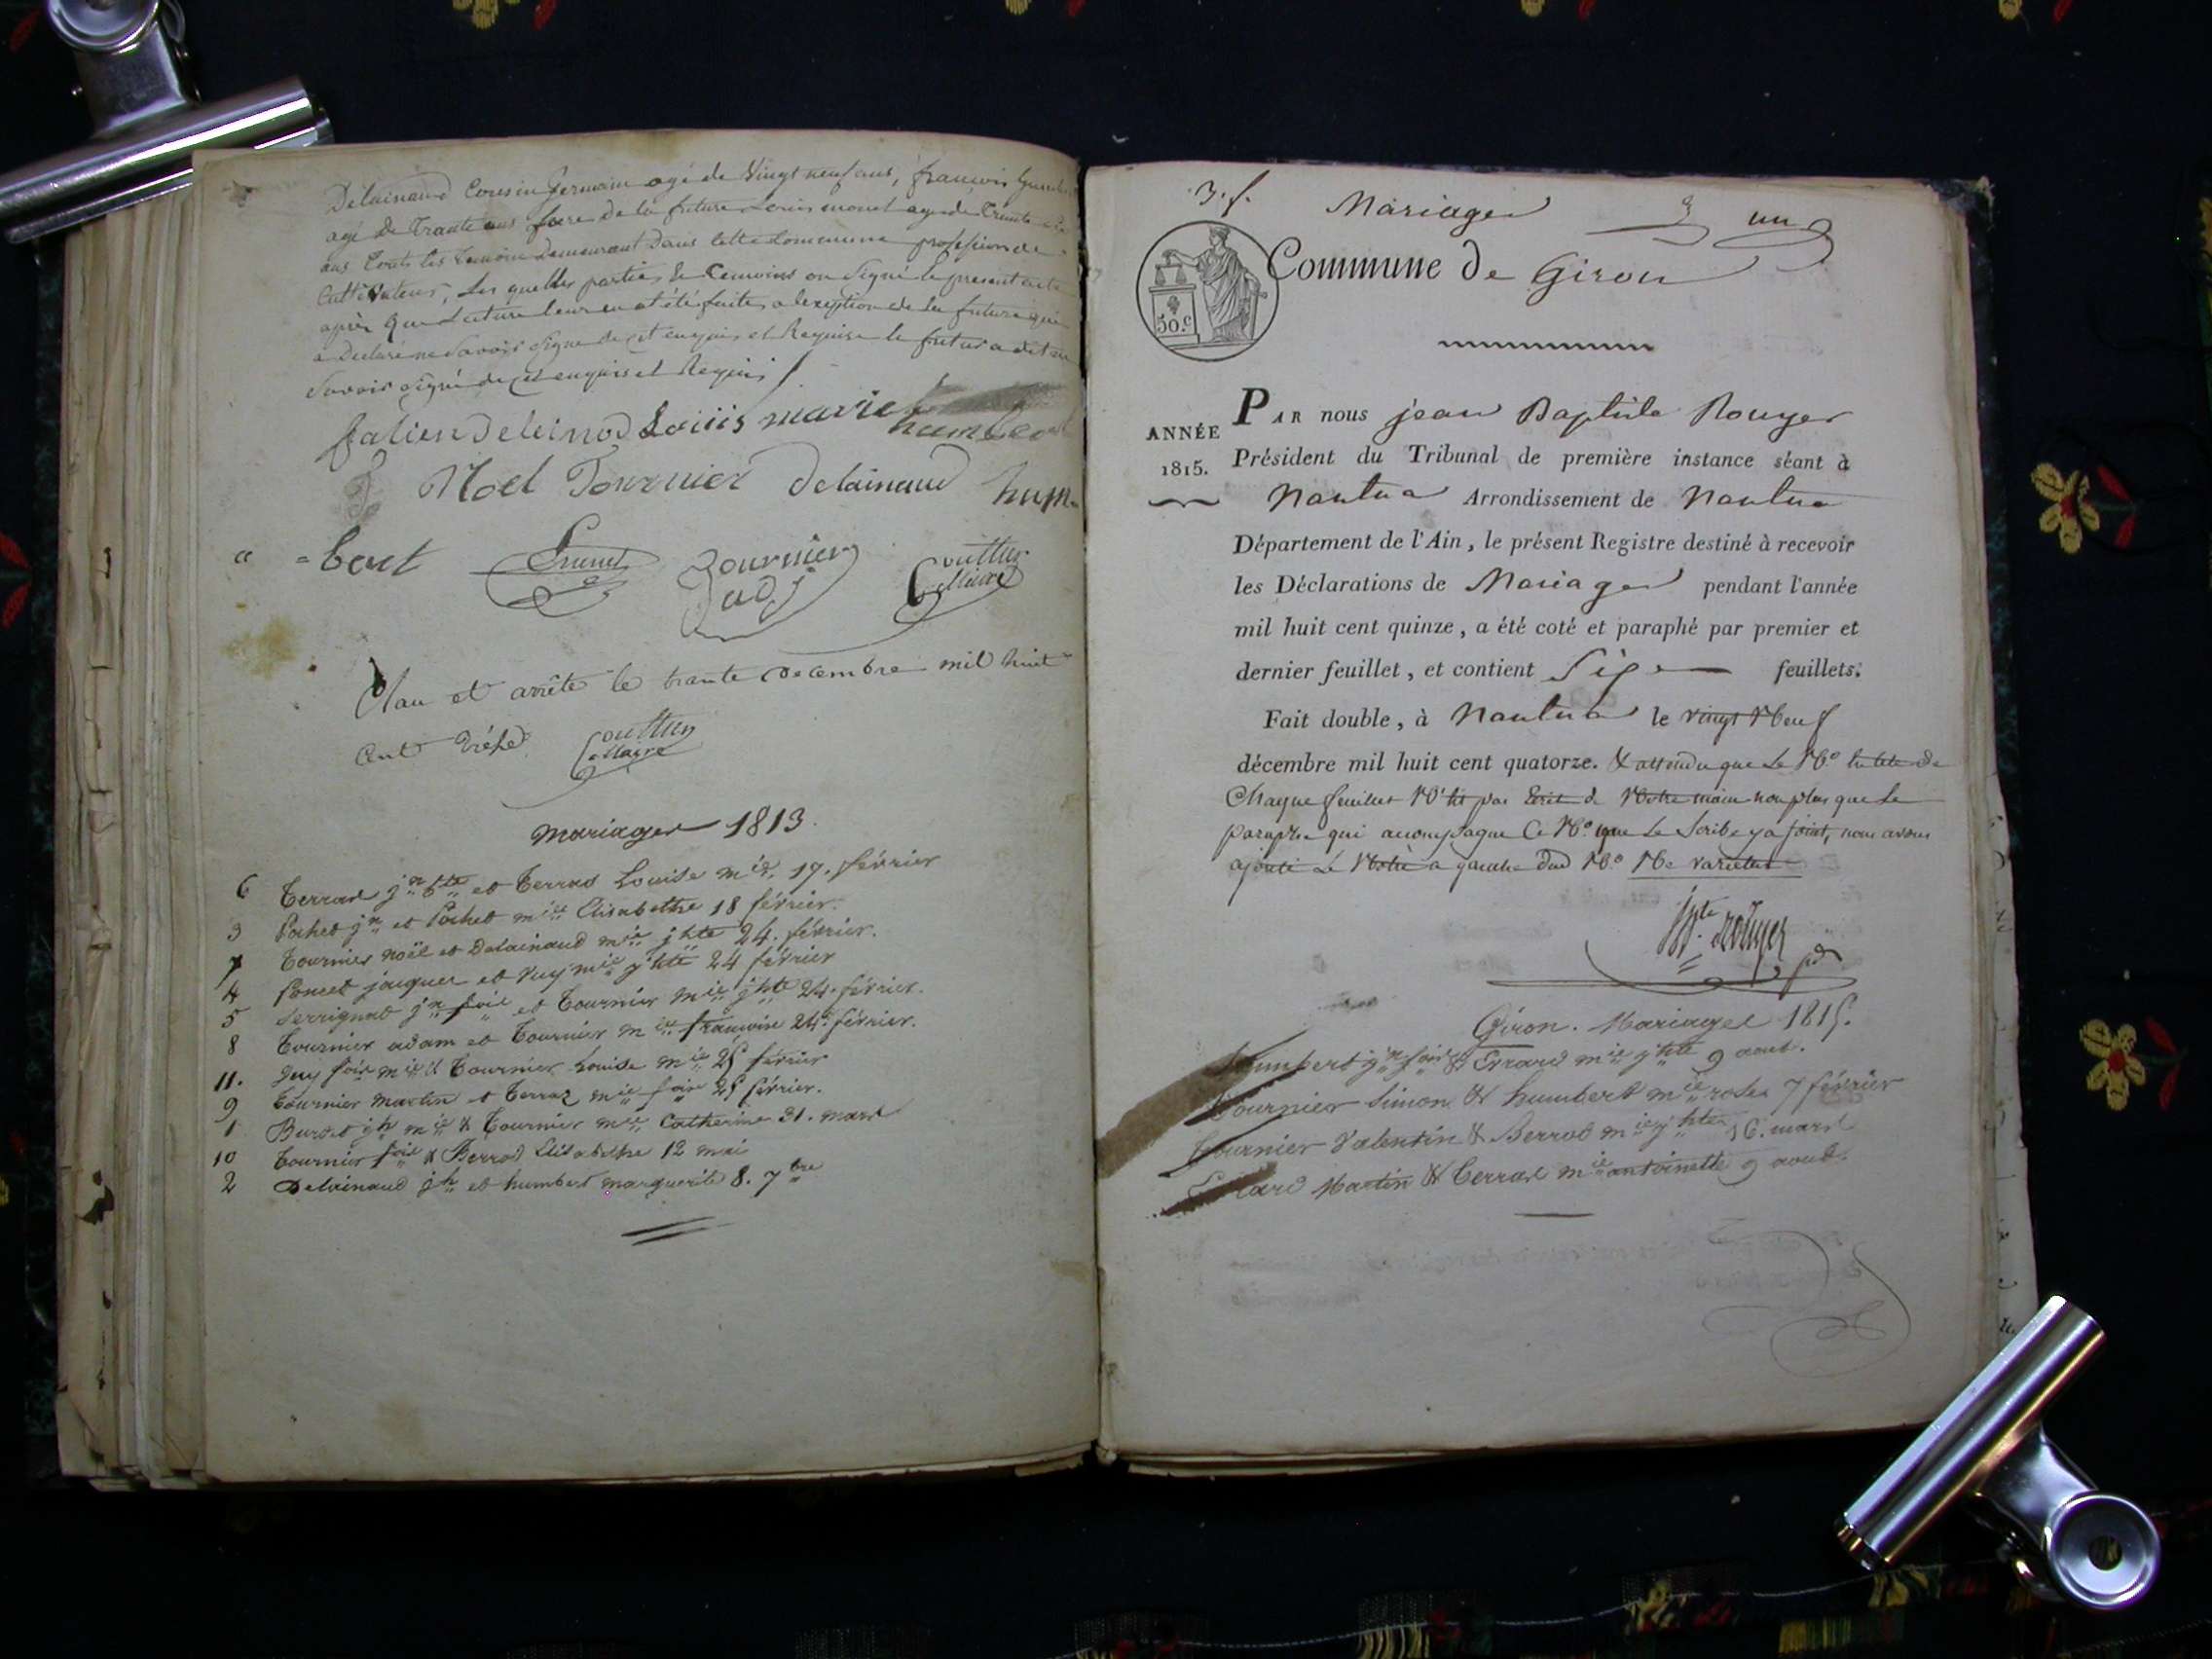 Delainaud Cousin Germain agé de Vingt neuf ans, françois
agé de Trante ans frere de la future Louis monet agé de Trente
ans Touts les temoin Demeurant Dans cette Commune profession de
Cultivateur, Les quelles parties & Temoins on Signé le present acte
après que Lecture leur en at été faite, a lexeption de la future qui
a Declaré ne Savoir Signé de cet enquis et Requise le futur a dit
Savoir Signé de cet enquis et Requis
Louiis marie
humber
Noel Tournier Delainaud hum=
=bert Tournier adj Coutthur Maire
Clau et arrêté le trante Decembre mil huit
Cent trèse Coutthur Maire
Mariages 1813.
6 Terraz j.n b.te et Terraz Louise m.ie 17. février
3 Pochet j.n et Pochet m.ie Elisabethe 18 février.
7 Tournier noël et Delainaud m.ie j.hte 24. février.
4 Poncet jacques et ruy m.ie j.hte 24 février
5 Serrignat j.n fois et Tournier m.ie j.hte 24. février.
8 Tournier adam et Tournier m.ie françoise 24. février.
11. Juy fois m.ie & Tournier Louise m.ie 25 février
9 Tournier Martin et Terraz m.ie foise 25 février.
1 Burdet j.h m.ie & Tournier m.ie Catherine 31. mars
10 Tournier fois & Berrod Elisabethe 12 mai
2 Delainaud j.h et humbert marguerite 8. 7bre
3. f. Mariages un
Commune de Giron
50.c
ANNÉE
1815.
PAR nous jean Baptiste Rouyer
Président du Tribunal de première instance séant à
Nantua Arrondissement de Nantua
Département de l'Ain, le présent Registre destiné à recevoir
les Déclarations de Mariages pendant l'année
mil huit cent quinze, a été coté et paraphé par premier et
dernier feuillet, et contient Six feuillets.
Fait double, à Nantua le vingt Neuf
décembre mil huit cent quatorze. & attendu que Le N.o en tete de
Chaque feuillet N'est pas Ecrit de Notre main non plus que Le
paraphe qui accompagne Ce N.o que Le Scribe y a joint, nous avons
ajouté Le Notre a gauche dud N.o Ne varietur
Bte Rouyer
Giron. Mariages 1815.
humbert j.n fois & Errard m.ie j.hte 9 aout.
Tournier Simon & humbert m.ie rose 7 février
Tournier Valentin & Berrod m.ie j.hte 16. mars
Errard Martin & Terraz m.ie antoinette 9 aout.